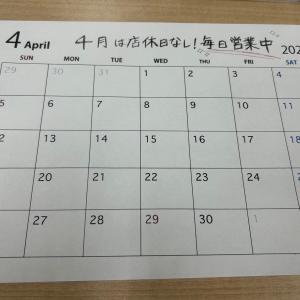 4 April 4月は店休日なし！毎日営業中 202
MON TUE WED THU FRI SAT
29 30 31 1 2 3 4
5 6 7 8 9 10 11
2 13 14 15 16 17 18
20 21 22 23 24 2
27 28 29 30 1